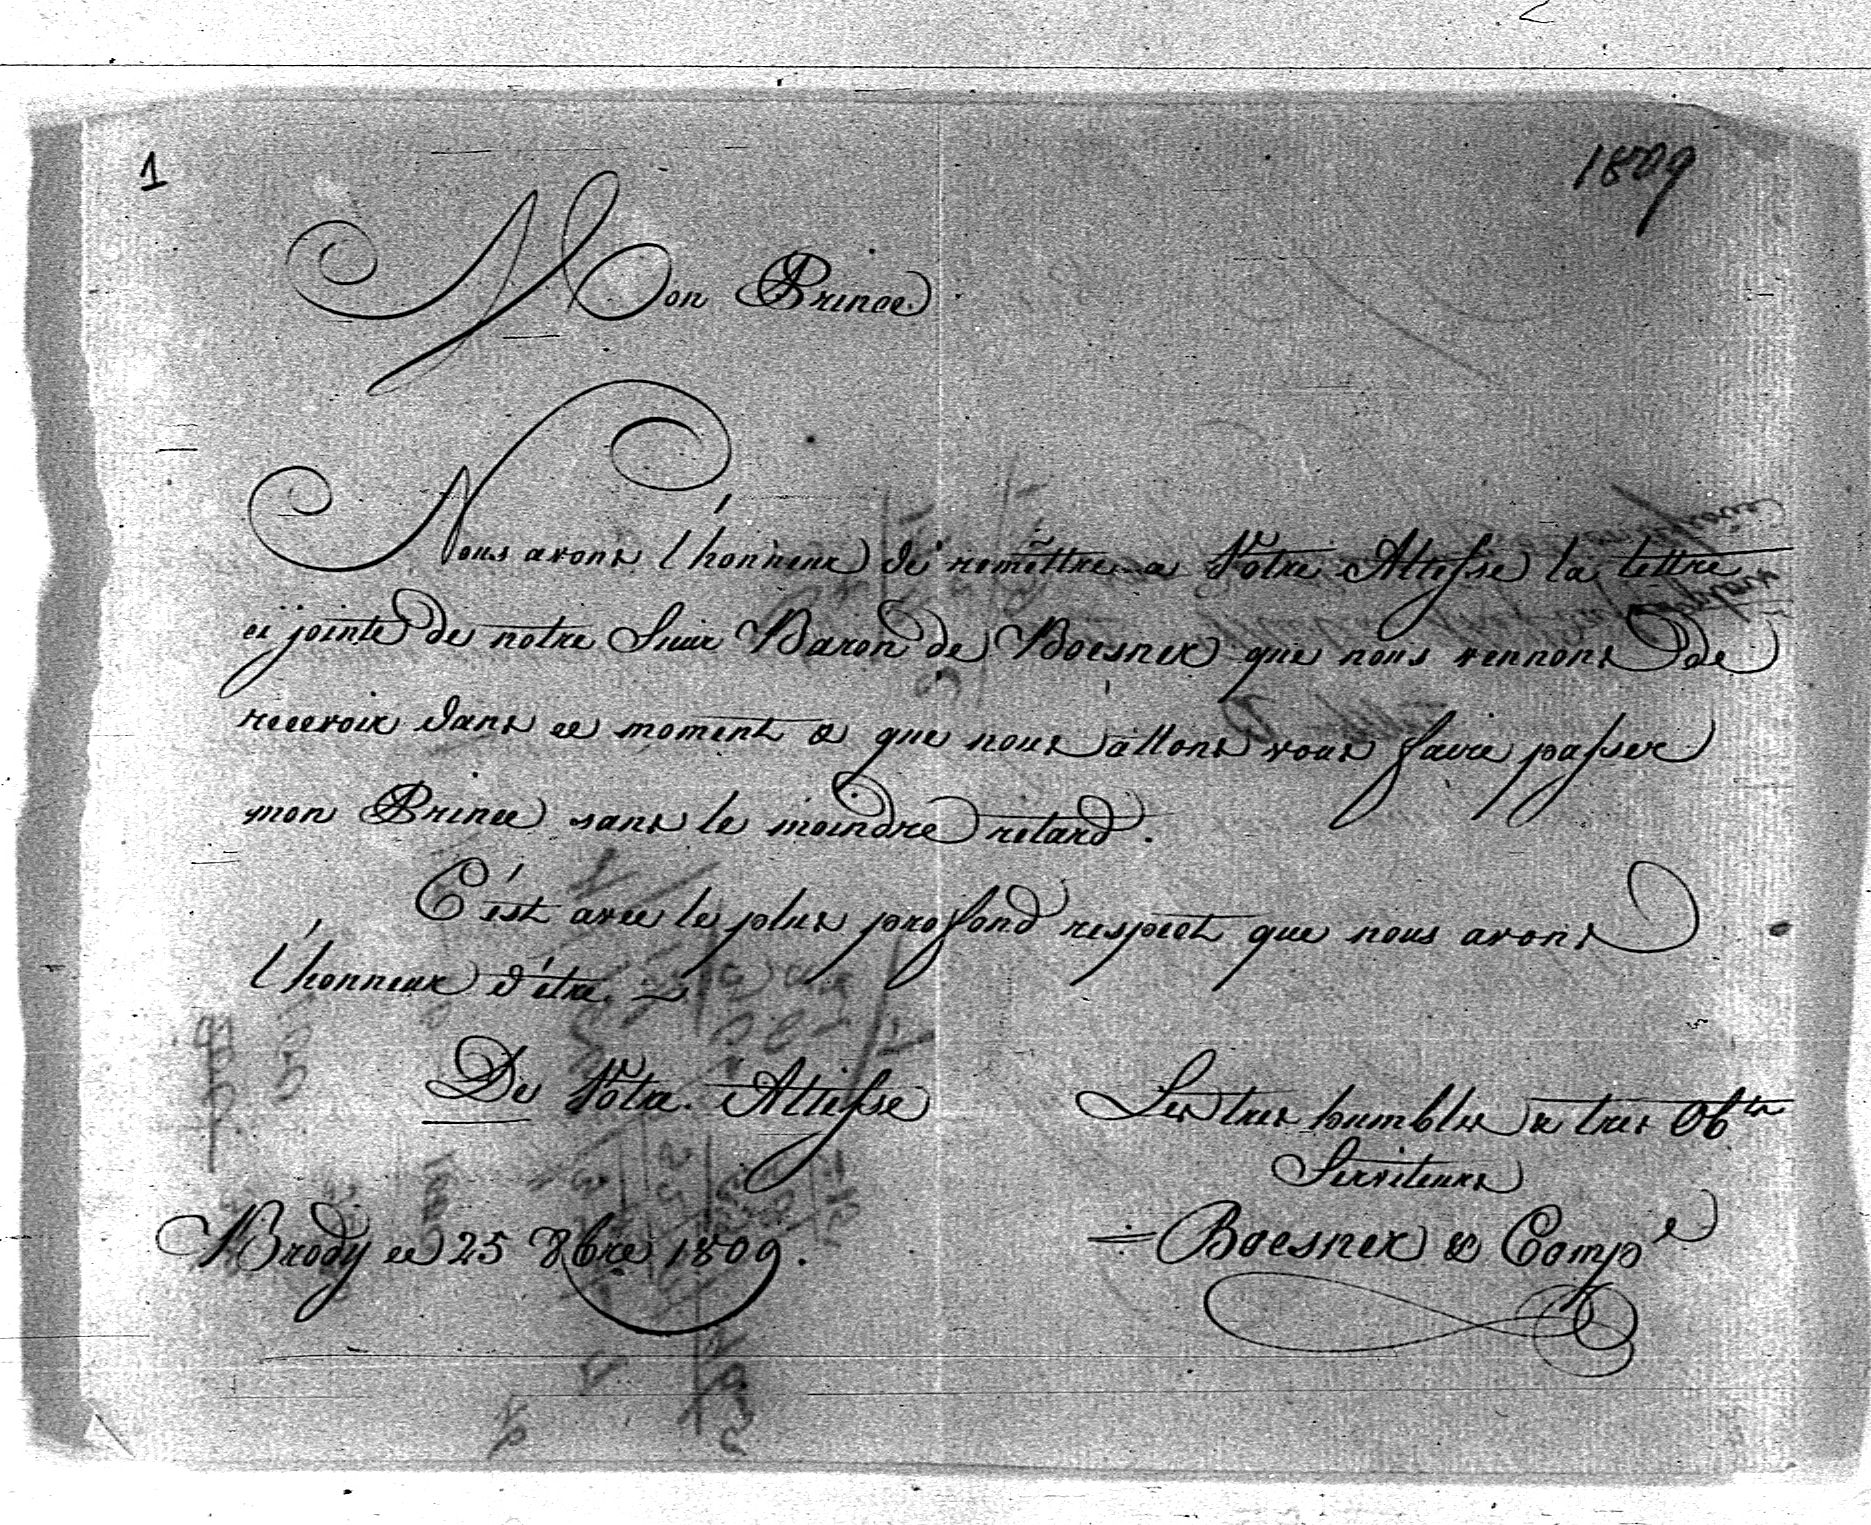 2
1
1809
Mon Prince
Nous avons l'honneur de remettre a Votre Altesse la lettre
ci jointe de notre Sieur Baron de Boesner que nous vennons de
recevoir dans ce moment & que nous allons vous faire passer
mon Prince sans le moindre retard.
C'est avec le plus profond respect que nous avons
l'honneur d'étre
De Votre Altesse
Les tres humbles & tres Ob.ts
Serviteurs
Brody ce 25 8bre 1809.
Boesner & Comp.e